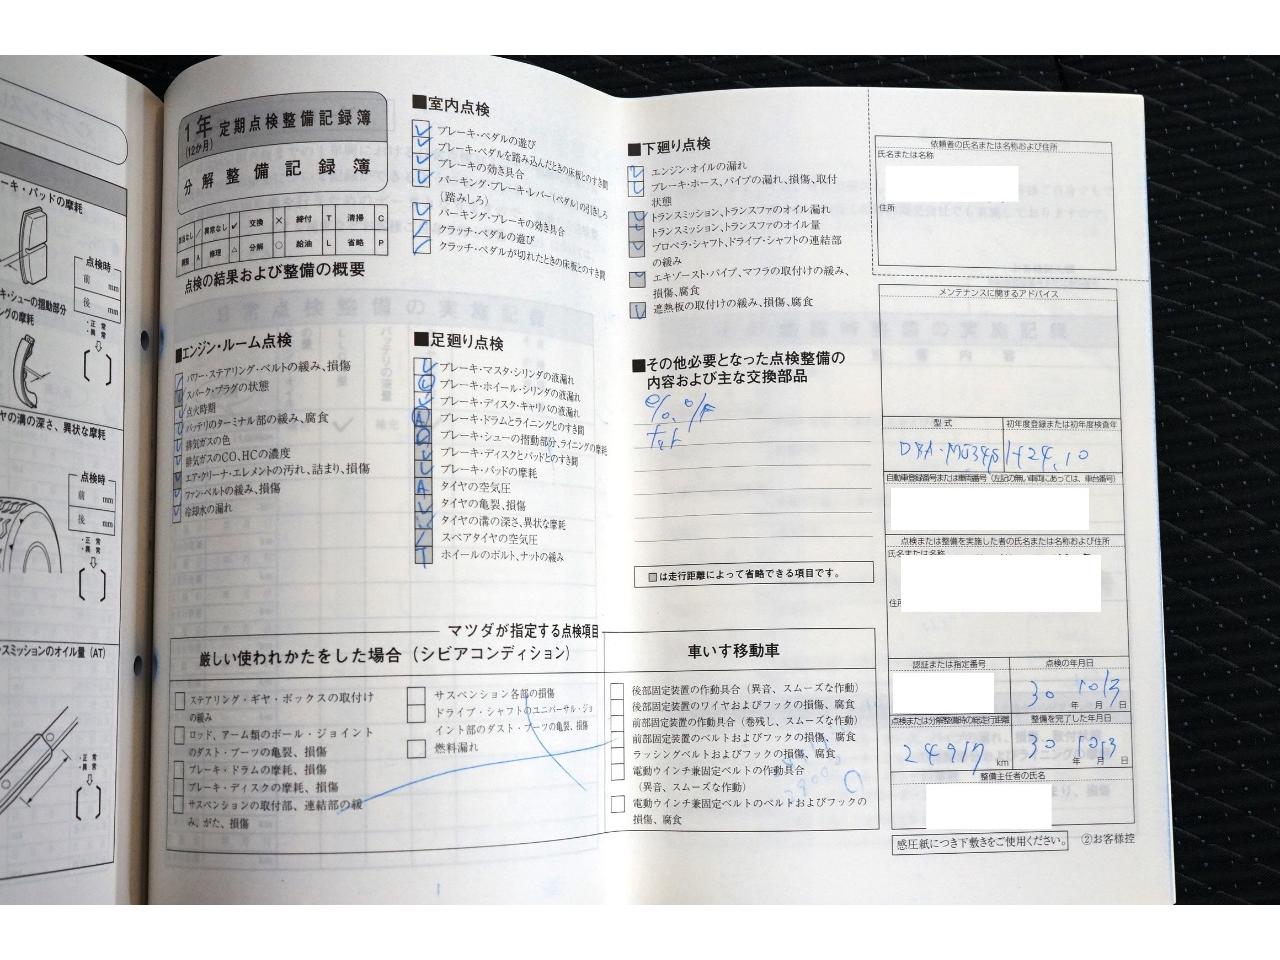 キ・パッドの摩耗
点検時
前 mm
後 mm
・正 常
・異 常
キ・シューの摺動部分
ングの摩耗
ヤの溝の深さ、異状な摩耗
点検時
前 mm
後 mm
・正 常
・異 常
スミッションのオイル量(AT)
・正 常
・異 常
1年 定期点検整備記録簿
(12か月)
分解整備記録簿
該当なし / 異常なし ✓ 交換 × 締付 T 清掃 C
調整 A 修理 △ 分解 ○ 給油 L 省略 P
点検の結果および整備の概要
■エンジン・ルーム点検
パワー・ステアリング・ベルトの緩み、損傷
スパーク・プラグの状態
点火時期
バッテリのターミナル部の緩み、腐食
排気ガスの色
排気ガスのCO、HCの濃度
エア・クリーナ・エレメントの汚れ、詰まり、損傷
ファン・ベルトの緩み、損傷
冷却水の漏れ
■室内点検
ブレーキ・ペダルの遊び
ブレーキ・ペダルを踏み込んだときの床板とのすき間
ブレーキの効き具合
パーキング・ブレーキ・レバー(ペダル)の引きしろ
(踏みしろ)
パーキング・ブレーキの効き具合
クラッチ・ペダルの遊び
クラッチ・ペダルが切れたときの床板とのすき間
■足廻り点検
ブレーキ・マスタ・シリンダの液漏れ
ブレーキ・ホイール・シリンダの液漏れ
ブレーキ・ディスク・キャリパの液漏れ
ブレーキ・ドラムとライニングとのすき間
ブレーキ・シューの摺動部分、ライニングの摩耗
ブレーキ・ディスクとパッドとのすき間
ブレーキ・パッドの摩耗
A タイヤの空気圧
タイヤの亀裂、損傷
タイヤの溝の深さ、異状な摩耗
スペアタイヤの空気圧
T ホイールのボルト、ナットの緩み
■下廻り点検
エンジン・オイルの漏れ
ブレーキ・ホース、パイプの漏れ、損傷、取付
状態
トランスミッション、トランスファのオイル漏れ
トランスミッション、トランスファのオイル量
プロペラ・シャフト、ドライブ・シャフトの連結部
の緩み
エキゾースト・パイプ、マフラの取付けの緩み、
損傷、腐食
遮熱板の取付けの緩み、損傷、腐食
■その他必要となった点検整備の
内容および主な交換部品
は走行距離によって省略できる項目です。
依頼者の氏名または名称および住所
氏名または名称
住所
メンテナンスに関するアドバイス
型 式 初年度登録または初年度検査年
DBA-MJ34S H24.10
自動車登録番号または車両番号(左記の無い車両にあっては、車台番号)
点検または整備を実施した者の氏名または名称および住所
氏名または名称
住所
認証または指定番号 点検の年月日
30 10 13
年 月 日
点検または分解整備時の総走行距離 整備を完了した年月日
24917 km 30 10 13
年 月 日
整備主任者の氏名
感圧紙につき下敷きをご使用ください。 ②お客様控
マツダが指定する点検項目
厳しい使われかたをした場合(シビアコンディション)
ステアリング・ギヤ・ボックスの取付け
の緩み
ロッド、アーム類のボール・ジョイント
のダスト・ブーツの亀裂、損傷
ブレーキ・ドラムの摩耗、損傷
ブレーキ・ディスクの摩耗、損傷
サスペンションの取付部、連結部の緩
み、がた、損傷
サスペンション各部の損傷
ドライブ・シャフトのユニバーサル・ジョ
イント部のダスト・ブーツの亀裂、損傷
燃料漏れ
車いす移動車
後部固定装置の作動具合(異音、スムーズな作動)
後部固定装置のワイヤおよびフックの損傷、腐食
前部固定装置の作動具合(巻残し、スムーズな作動)
前部固定装置のベルトおよびフックの損傷、腐食
ラッシングベルトおよびフックの損傷、腐食
電動ウインチ兼固定ベルトの作動具合
(異音、スムーズな作動)
電動ウインチ兼固定ベルトのベルトおよびフックの
損傷、腐食